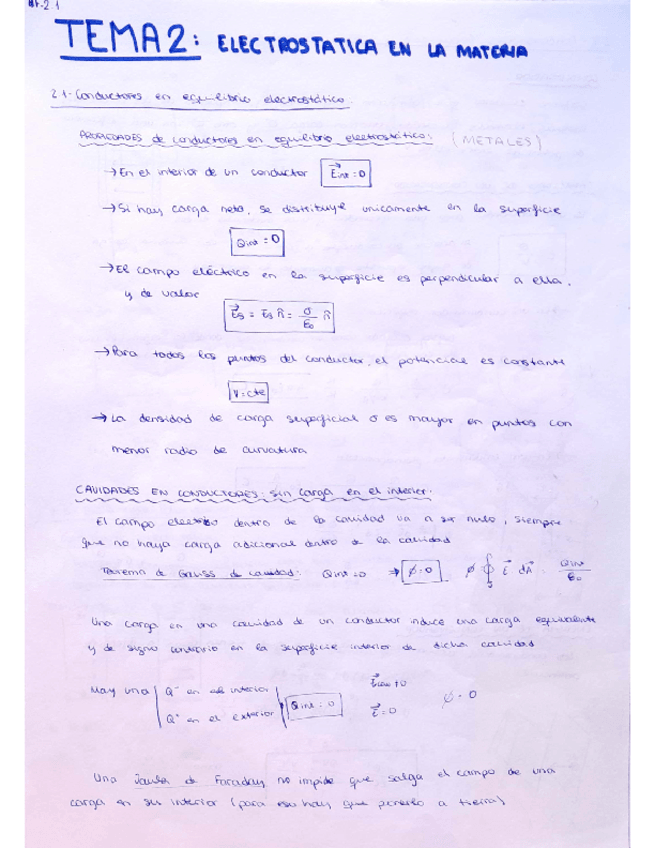 TEMA 2: ELECTROSTATICA EN LA MATERIA
2.1- Conductores en equilibrio electrostático.
PROPIEDADES de conductores en equilibrio electrostático: (METALES)
→ En el interior de un conductor E⃗int = 0
→ Si hay carga neta, se distribuye unicamente en la superficie
Qint = 0
→ El campo eléctrico en la superficie es perpendicular a ella,
y de valor
E⃗s = Es n̂ = σ/ε₀ n̂
→ Para todos los puntos del conductor, el potencial es constante
V = cte
→ La densidad de carga superficial σ es mayor en puntos con
menor radio de curvatura
CAVIDADES EN CONDUCTORES: sin carga en el interior:
El campo electrico dentro de la cavidad va a ser nulo, siempre
que no haya carga adicional dentro de la cavidad
Teorema de Gauss de cavidad: Qint = 0 → ϕ = 0 ϕ ∮s E⃗ dA⃗ = Qint/ε₀
Una carga en una cavidad de un conductor induce una carga equivalente
y de signo contrario en la superficie interior de dicha cavidad
Hay una Q⁻ en el interior Qint = 0 E⃗cav ≠ 0
Q⁺ en el exterior E⃗ = 0 ϕ = 0
Una Jaula de Faraday no impide que salga el campo de una
carga en su interior (para eso hay que ponerlo a tierra)